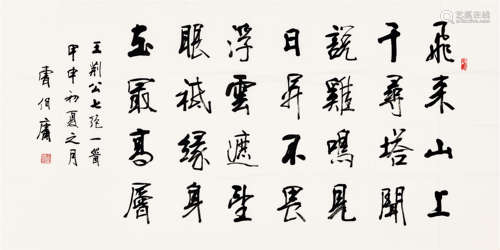 飛来山上
千尋塔聞
說雞鳴見
日昇不畏
浮雲遮望
眼祇緣身
在最高層
王荆公七絕一首
甲申初夏之月
伯庸